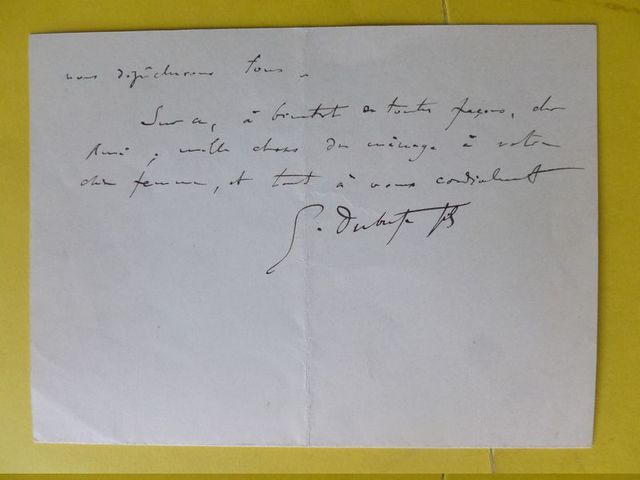 nous dépêcherons tous.
Sur ce, à bientôt de toutes façons, cher
ami, mille choses du ménage à votre
chère femme, et tout à vous cordialement
G. Dubufe fils